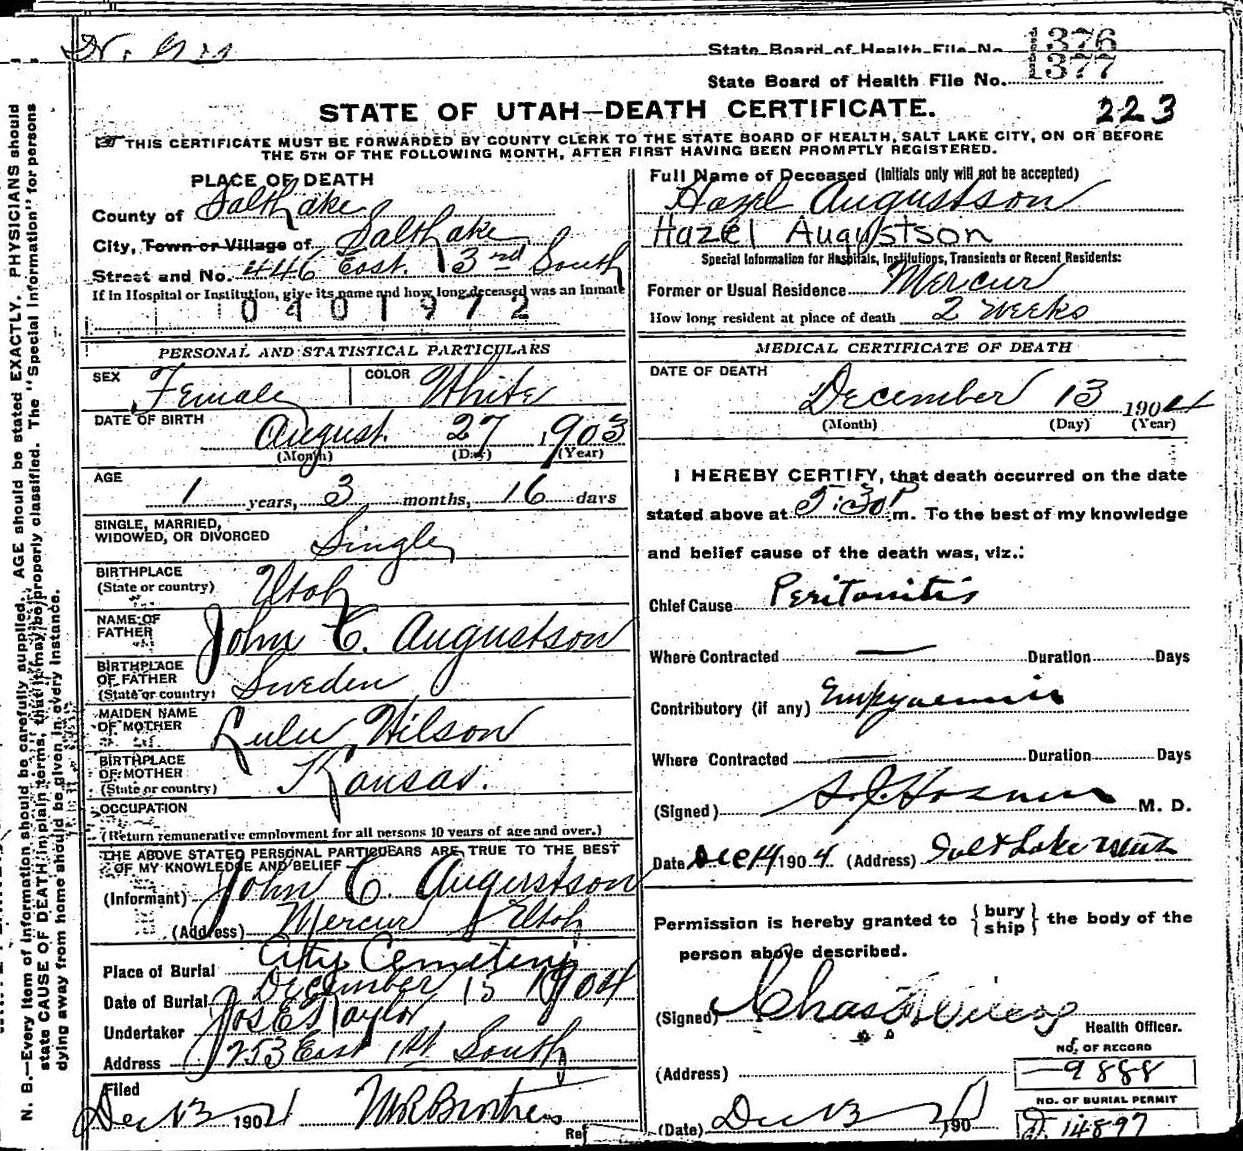 State Board of Health File No. 1376
State Board of Health File No. 1377
STATE OF UTAH—DEATH CERTIFICATE. 223
THIS CERTIFICATE MUST BE FORWARDED BY COUNTY CLERK TO THE STATE BOARD OF HEALTH, SALT LAKE CITY, ON OR BEFORE
THE 5TH OF THE FOLLOWING MONTH, AFTER FIRST HAVING BEEN PROMPTLY REGISTERED.
PLACE OF DEATH
County of Salt Lake
City, Town or Village of Salt Lake
Street and No. 446 East 3rd South
If in Hospital or Institution, give its name and how long deceased was an Inmate
0401972
PERSONAL AND STATISTICAL PARTICULARS
SEX Female COLOR White
DATE OF BIRTH August 27, 1903
(Month) (Day) (Year)
AGE
1 years, 3 months, 16 days
SINGLE, MARRIED,
WIDOWED, OR DIVORCED Single
BIRTHPLACE
(State or country) Utah
NAME OF
FATHER John C. Augustson
BIRTHPLACE
OF FATHER
(State or country) Sweden
MAIDEN NAME
OF MOTHER Lulu Wilson
BIRTHPLACE
OF MOTHER
(State or country) Kansas.
OCCUPATION
(Return remunerative employment for all persons 10 years of age and over.)
THE ABOVE STATED PERSONAL PARTICULARS ARE TRUE TO THE BEST
OF MY KNOWLEDGE AND BELIEF
(Informant) John C. Augustson
(Address) Mercur Utah
Place of Burial City Cemetery
Date of Burial December 15 1904
Undertaker Jos E Taylor
Address 253 East 1st South
Filed
Dec 13 190
Full Name of Deceased (Initials only will not be accepted)
Hazel Augustson
Hazel Augustson
Special Information for Hospitals, Institutions, Transients or Recent Residents:
Former or Usual Residence Mercur
How long resident at place of death 2 weeks
MEDICAL CERTIFICATE OF DEATH
DATE OF DEATH
December 13 1904
(Month) (Day) (Year)
I HEREBY CERTIFY, that death occurred on the date
stated above at 5:30 P m. To the best of my knowledge
and belief cause of the death was, viz.:
Chief Cause Peritonitis
Where Contracted — Duration Days
Contributory (if any)
Where Contracted — Duration Days
(Signed) M. D.
Date Dec 14 1904. (Address) Salt Lake
Permission is hereby granted to { bury
ship } the body of the
person above described.
(Signed) Chas
Health Officer.
(Address)
NO. OF RECORD
9888
NO. OF BURIAL PERMIT
14897
(Date) Dec 13 190
N. B.—Every item of information should be carefully supplied. AGE should be stated EXACTLY. PHYSICIANS should
state CAUSE OF DEATH in plain terms, that it may be properly classified. The "Special Information" for persons
dying away from home should be given in every instance.